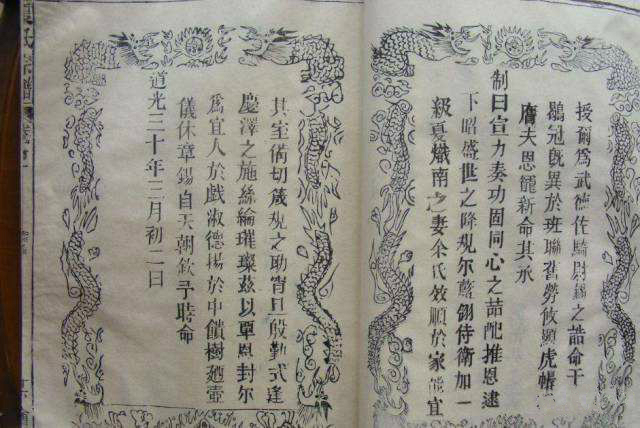 授爾爲武德佐騎尉錫之誥命于
戲鶡冠旣異於班聯舊勞攸顯虎帳
膺夫恩寵新命其承
制曰宣力奏功固同心之喆配推恩逮
下昭盛世之隆規尔藍翎侍衛加一
級夏熾南之妻余氏效順於家能宜
其室僃切箴規之助宵旦殷勤式逢
慶澤之施絲綸璀璨茲以覃恩封尔
爲宜人於戲淑德揚於中饋樹廼壼
儀休章錫自天朝欽予時命
道光三十年三月初二日
氏宗譜